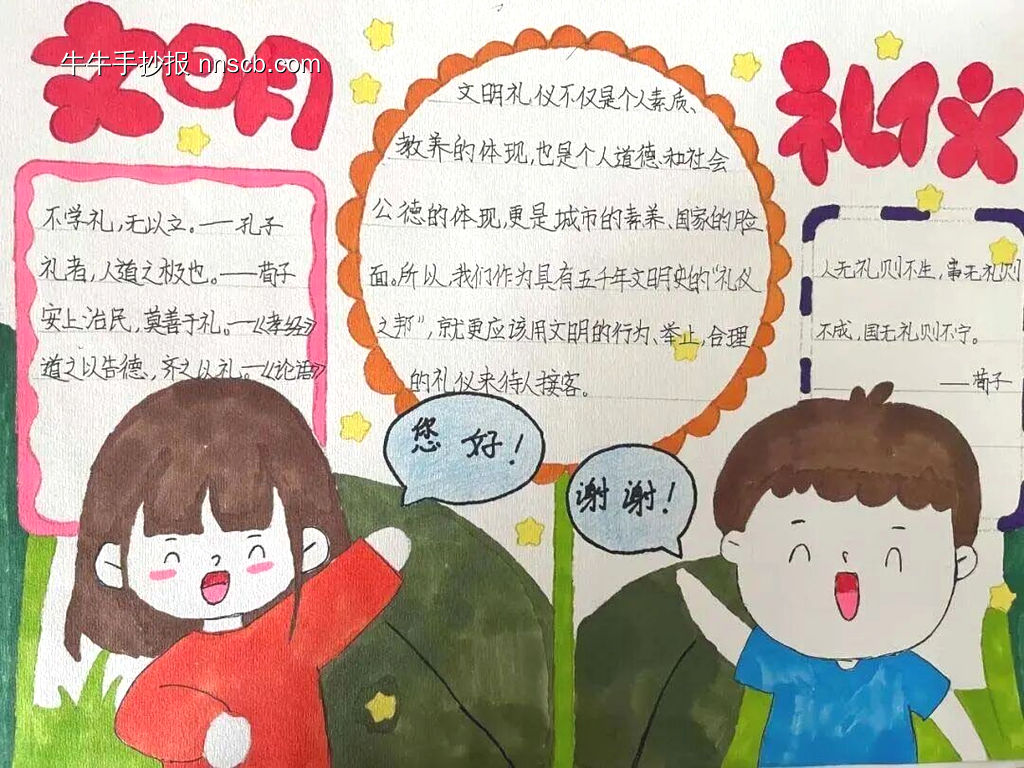 文明
礼仪
牛牛手抄报 nnscb.com
不学礼,无以立。——孔子
礼者,人道之极也。——荀子
安上治民,莫善于礼。—《孝经》
道之以告德,齐之以礼。—《论语》
文明礼仪不仅是个人素质、
教养的体现,也是个人道德和社会
公德的体现,更是城市的素养、国家的脸
面。所以,我们作为具有五千年文明史的“礼仪
之邦”,京就更应该用文明的行为、举止,合理
的礼仪来待人接客。
人无礼则不生,事无礼则
不成,国无礼则不宁。
——荀子
您好!
谢谢!